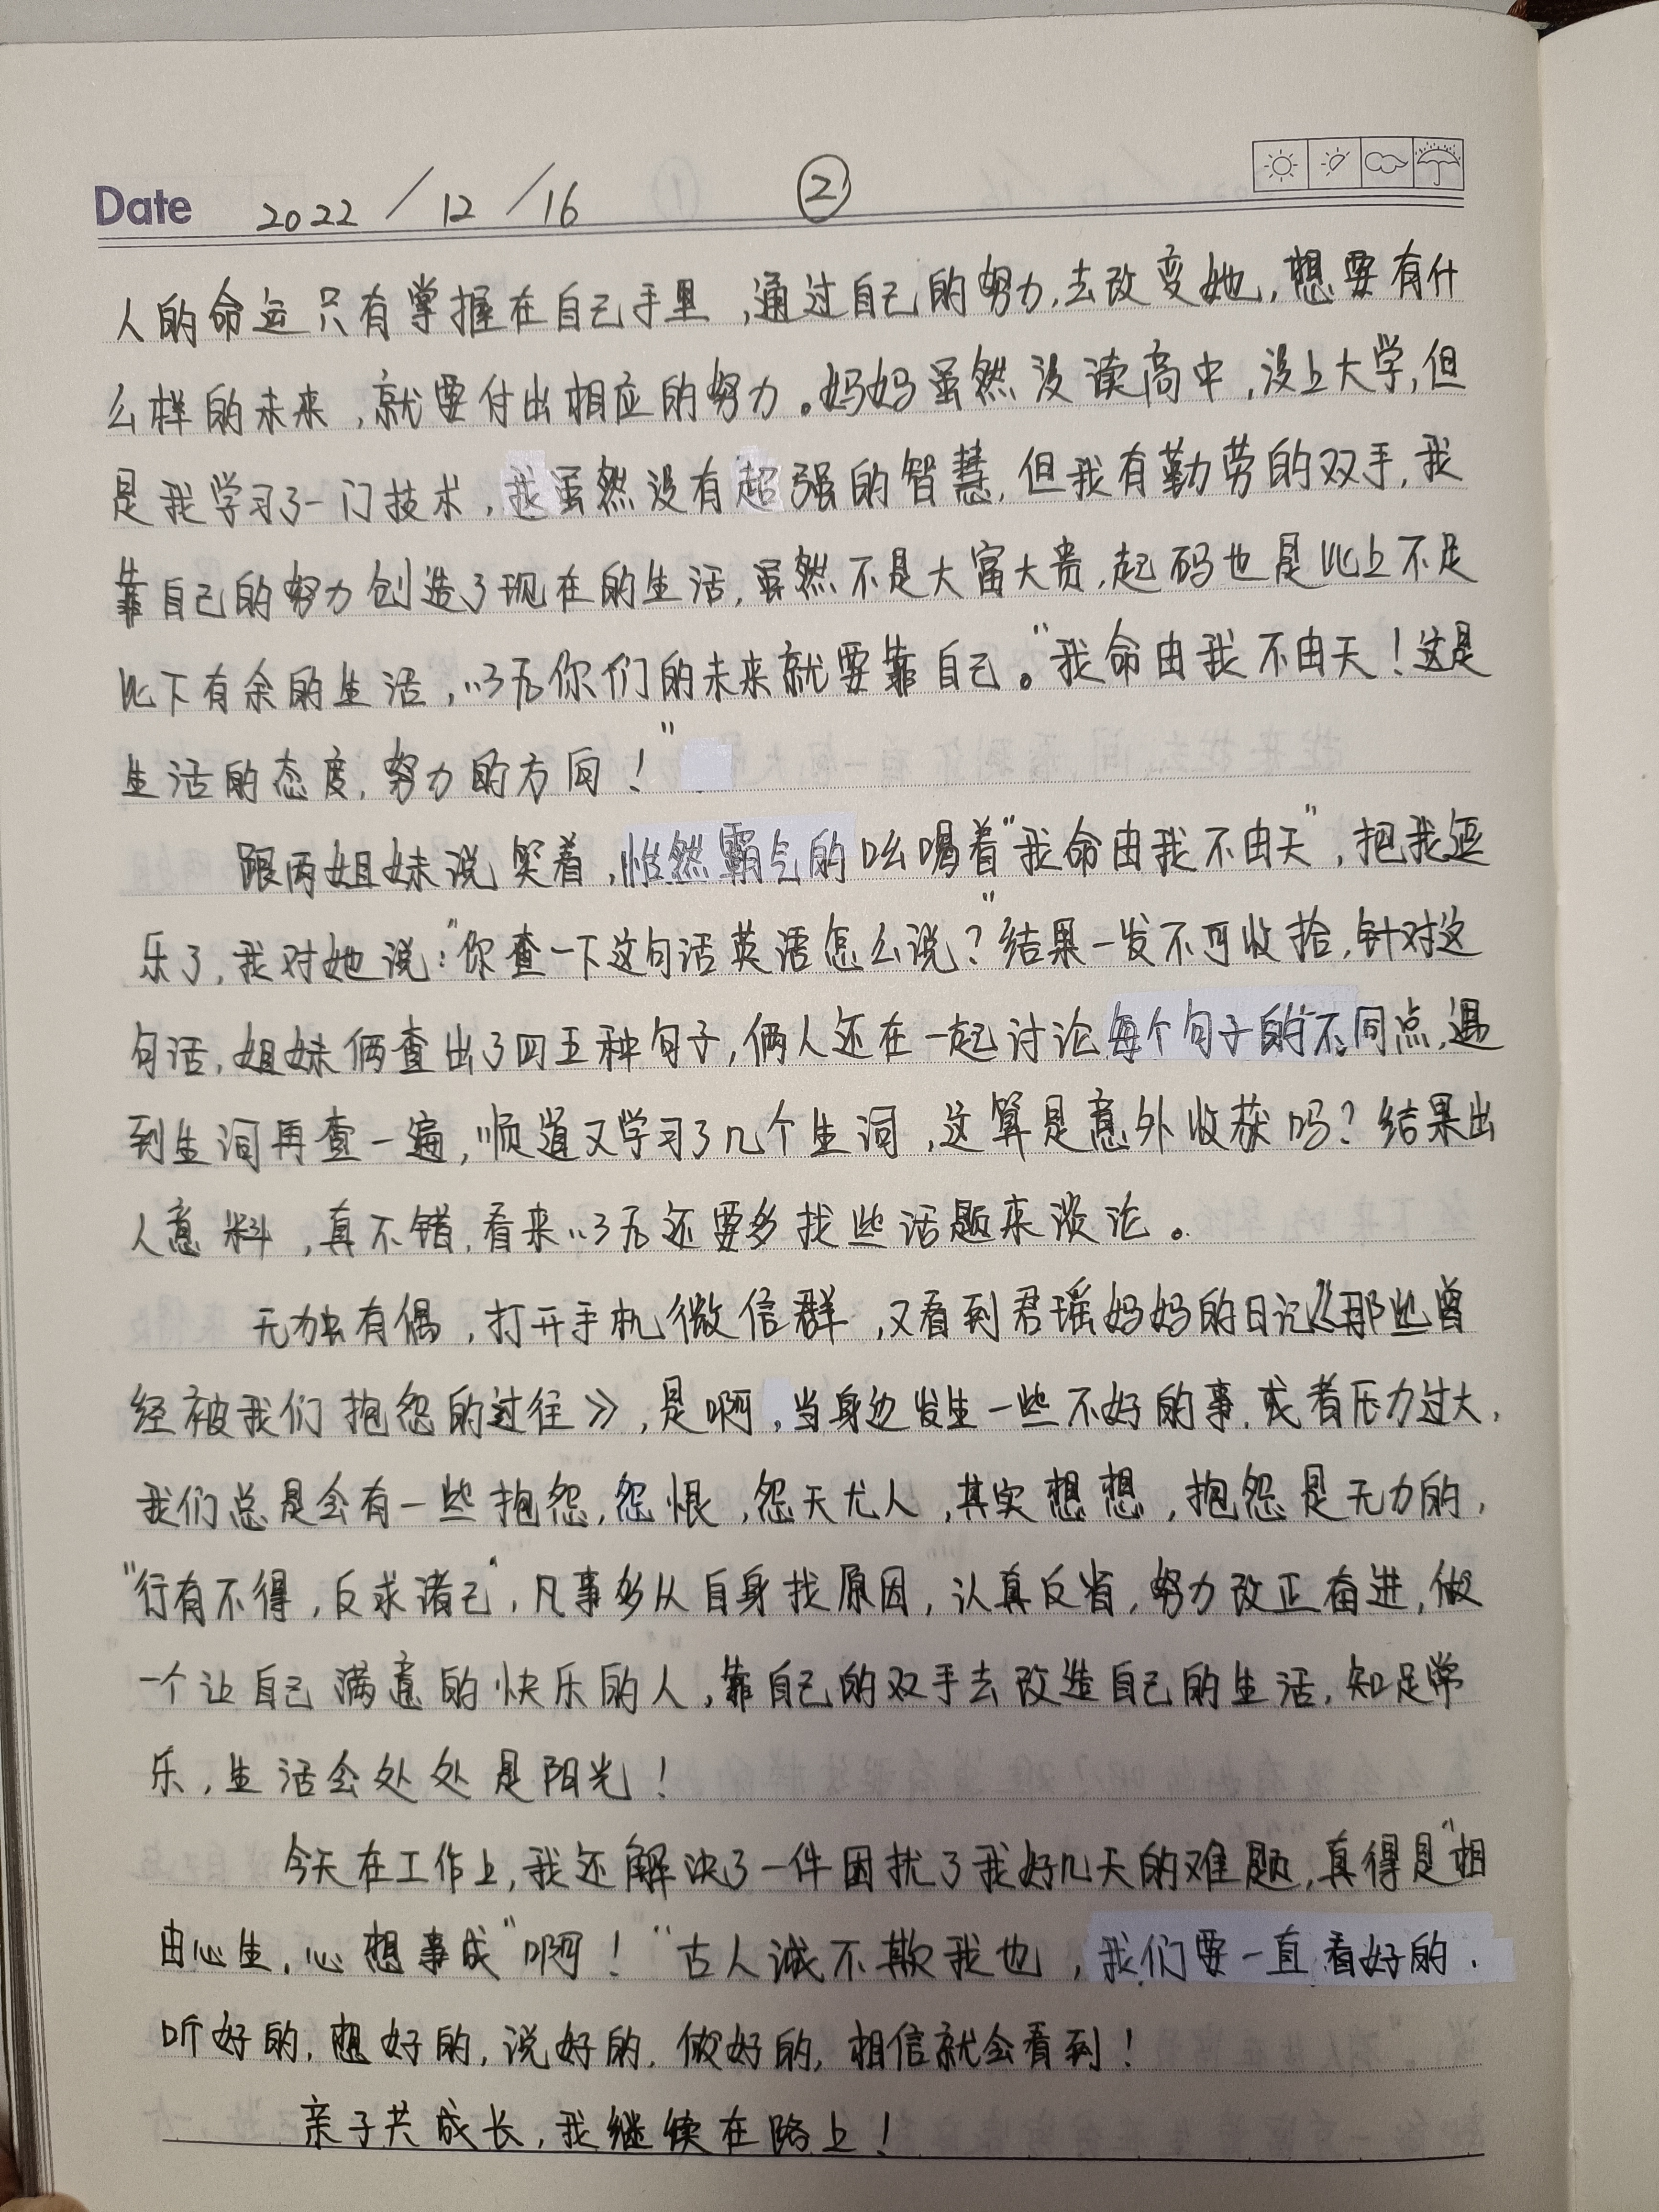 Date 2022/12/16 ②
人的命运只有掌握在自己手里,通过自己的努力,去改变她,想要有什
么样的未来,就要付出相应的努力。妈妈虽然没读高中,没上大学,但
是我学习了一门技术,我虽然没有超强的智慧,但我有勤劳的双手,我
靠自己的努力创造了现在的生活,虽然不是大富大贵,起码也是比上不足
比下有余的生活,以后你们的未来就要靠自己。"我命由我不由天!这是
生活的态度,努力的方向!"
跟两姐妹说笑着,怡然霸气的吆喝着"我命由我不由天",把我逗
乐了,我对她说:"你查一下这句话英语怎么说?"结果一发不可收拾,针对这
句话,姐妹俩查出了四五种句子,俩人还在一起讨论每个句子的不同点,遇
到生词再查一遍,顺道又学习了几个生词,这算是意外收获吗?结果出
人意料,真不错,看来以后还要多找些话题来谈论。
无独有偶,打开手机微信群,又看到君瑶妈妈的日记《那些曾
经被我们抱怨的过往》,是啊,当身边发生一些不好的事,或者压力过大,
我们总是会有一些抱怨,怨恨,怨天尤人,其实想想,抱怨是无力的,
"行有不得,反求诸己",凡事多从自身找原因,认真反省,努力改正奋进,做
一个让自己满意的快乐的人,靠自己的双手去改造自己的生活,知足常
乐,生活会处处是阳光!
今天在工作上,我还解决了一件困扰了我好几天的难题,真得是"相
由心生,心想事成"啊!"古人诚不欺我也,我们要一直看好的,
听好的,想好的,说好的,做好的,相信就会看到!
亲子共成长,我继续在路上!